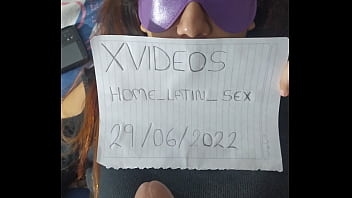 XVIDEOS
HOME_LATIN_SEX
29/06/2022